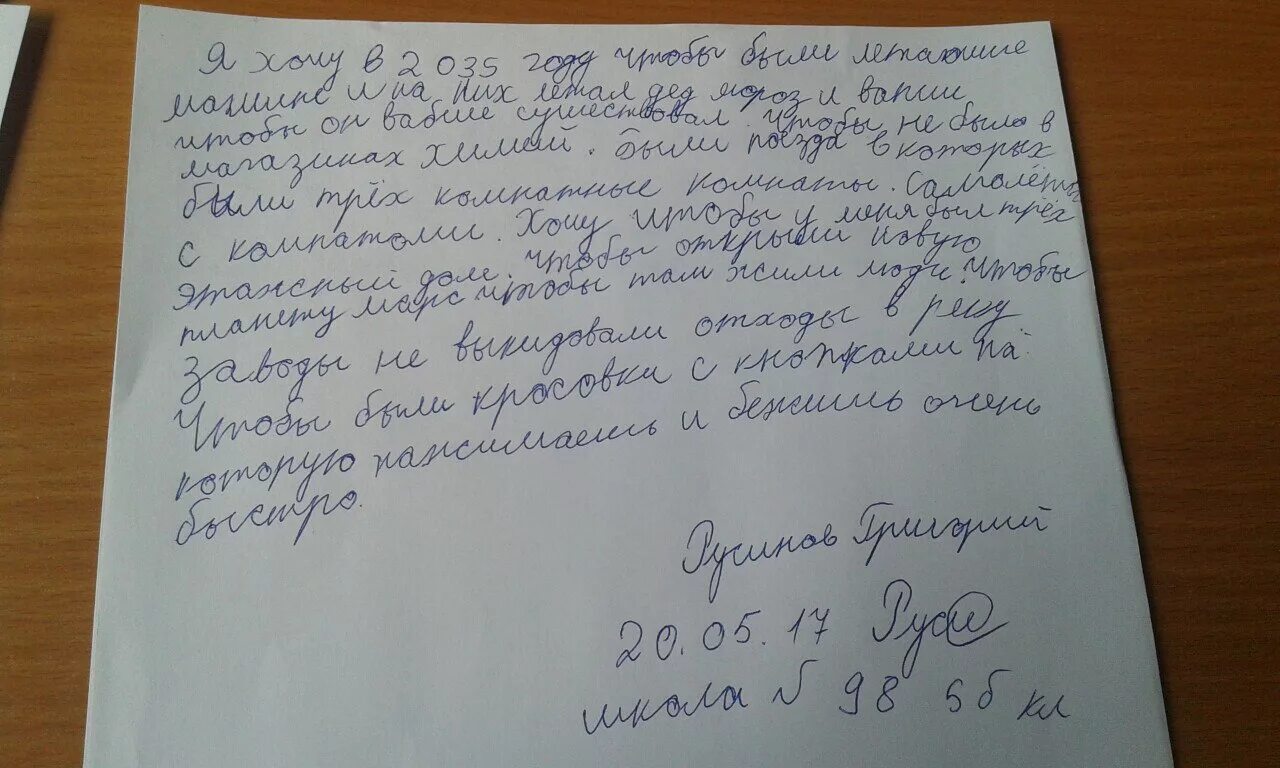 Я хочу в 2035 году чтобы были летающие
машины и на них летал дед мороз и вапще
чтобы он вабще существовал. Чтобы не было в
магазинах химий. Были поезда в которых
были трёх комнатные комнаты. Самолёты
с комнатоми. Хочу чтобы у меня был трёх
этажный дом. Чтобы открыли новую
планету марс чтобы там жили люди. Чтобы
заводы не выкидовали отходы в реку
Чтобы были кросовки с кнопками на
которую нажимаешь и бежишь очень
быстро.
Русинов Григорий
20.05.17 Руси
школа № 98 5б кл